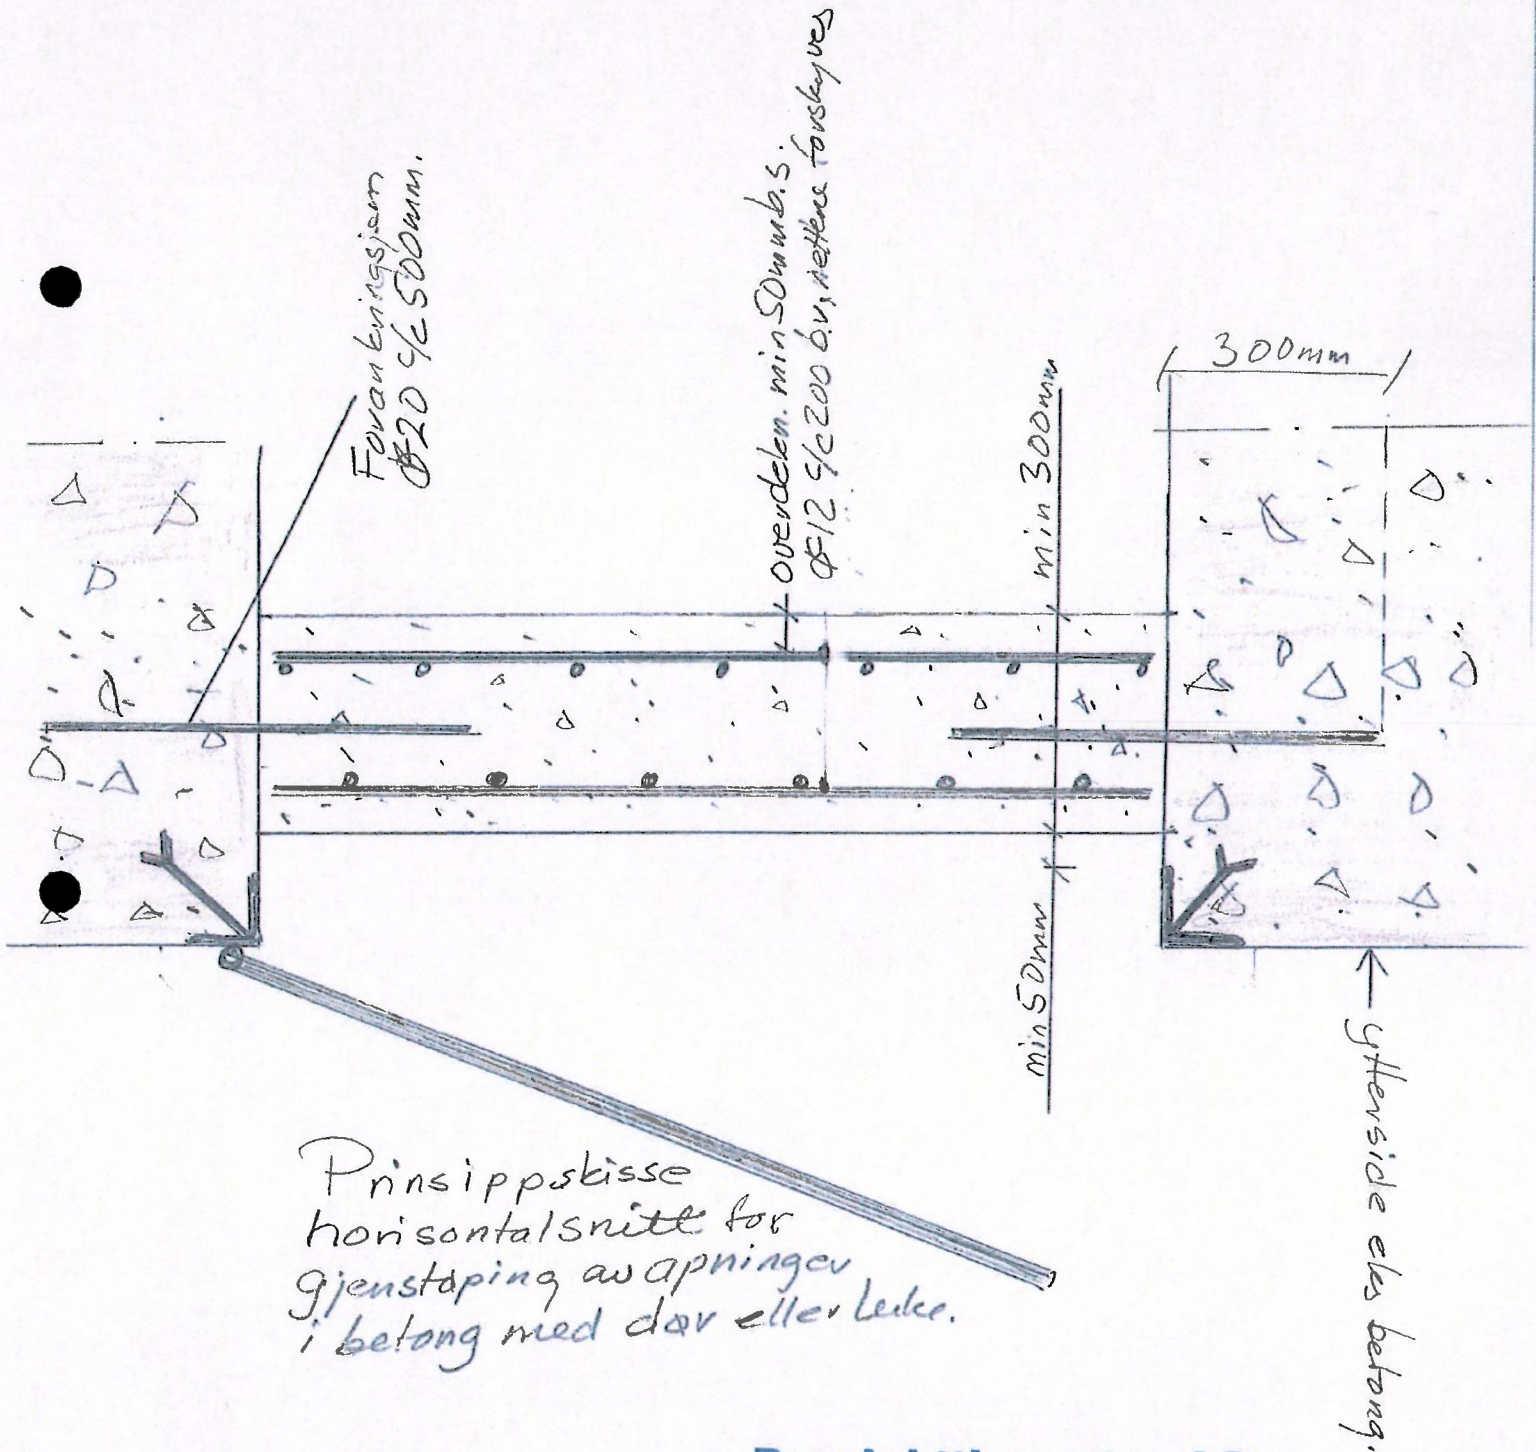 Forankringsjern
Ø20 c/c 500mm.
overdekn. min 50mm b.s.
Ø12 c/c 200 b.v, nettene forskyves
min 300mm
300mm
min 50mm
ytterside eks betong.
Prinsippskisse
horisontalsnitt for
gjenstøping av åpninger
i betong med dør eller luke.